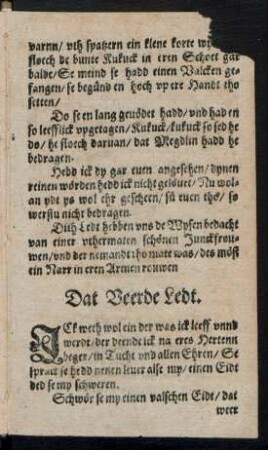 varnn / vth spatzern ein klene korte
floech de bunte Kukuck in eren Schoet gar
balde / Se meind se hadd einen Valcken ge-
fangen / se begünd en hoch vp ere Handt tho
setten /
Do se en lang geuödet hadd / vnd had en
so leefflick vpgetagen / Kukuck / kukuck so sed he
do / he floech daruan / dat Megdlin hadd he
bedragen.
Hedd ick dy gar euen angesehen / dynen
reinen worden hedd ick nicht gelöuet / Nu wol-
an ydt ys wol ehr gescheen / sü euen tho / so
werstu nicht bedragen.
Dith Ledt hebben vns de Wysen bedacht
van einer vthermaten schönen Junckfrou-
wen / vnd der nemandt tho matt was / des möst
ein Narr in eren Armen rouwen
Dat Veerde Ledt.
ICk weth wol ein der was ick leeff vnnd
werdt / der deende ick na eres Hertenn
beger / in Tucht vnd allen Ehren / Se
sprack se hedd nenen leuer alse my / einen Eidt
ded se my schweren.
Schwör se my einen valschen Eidt / dat
weer